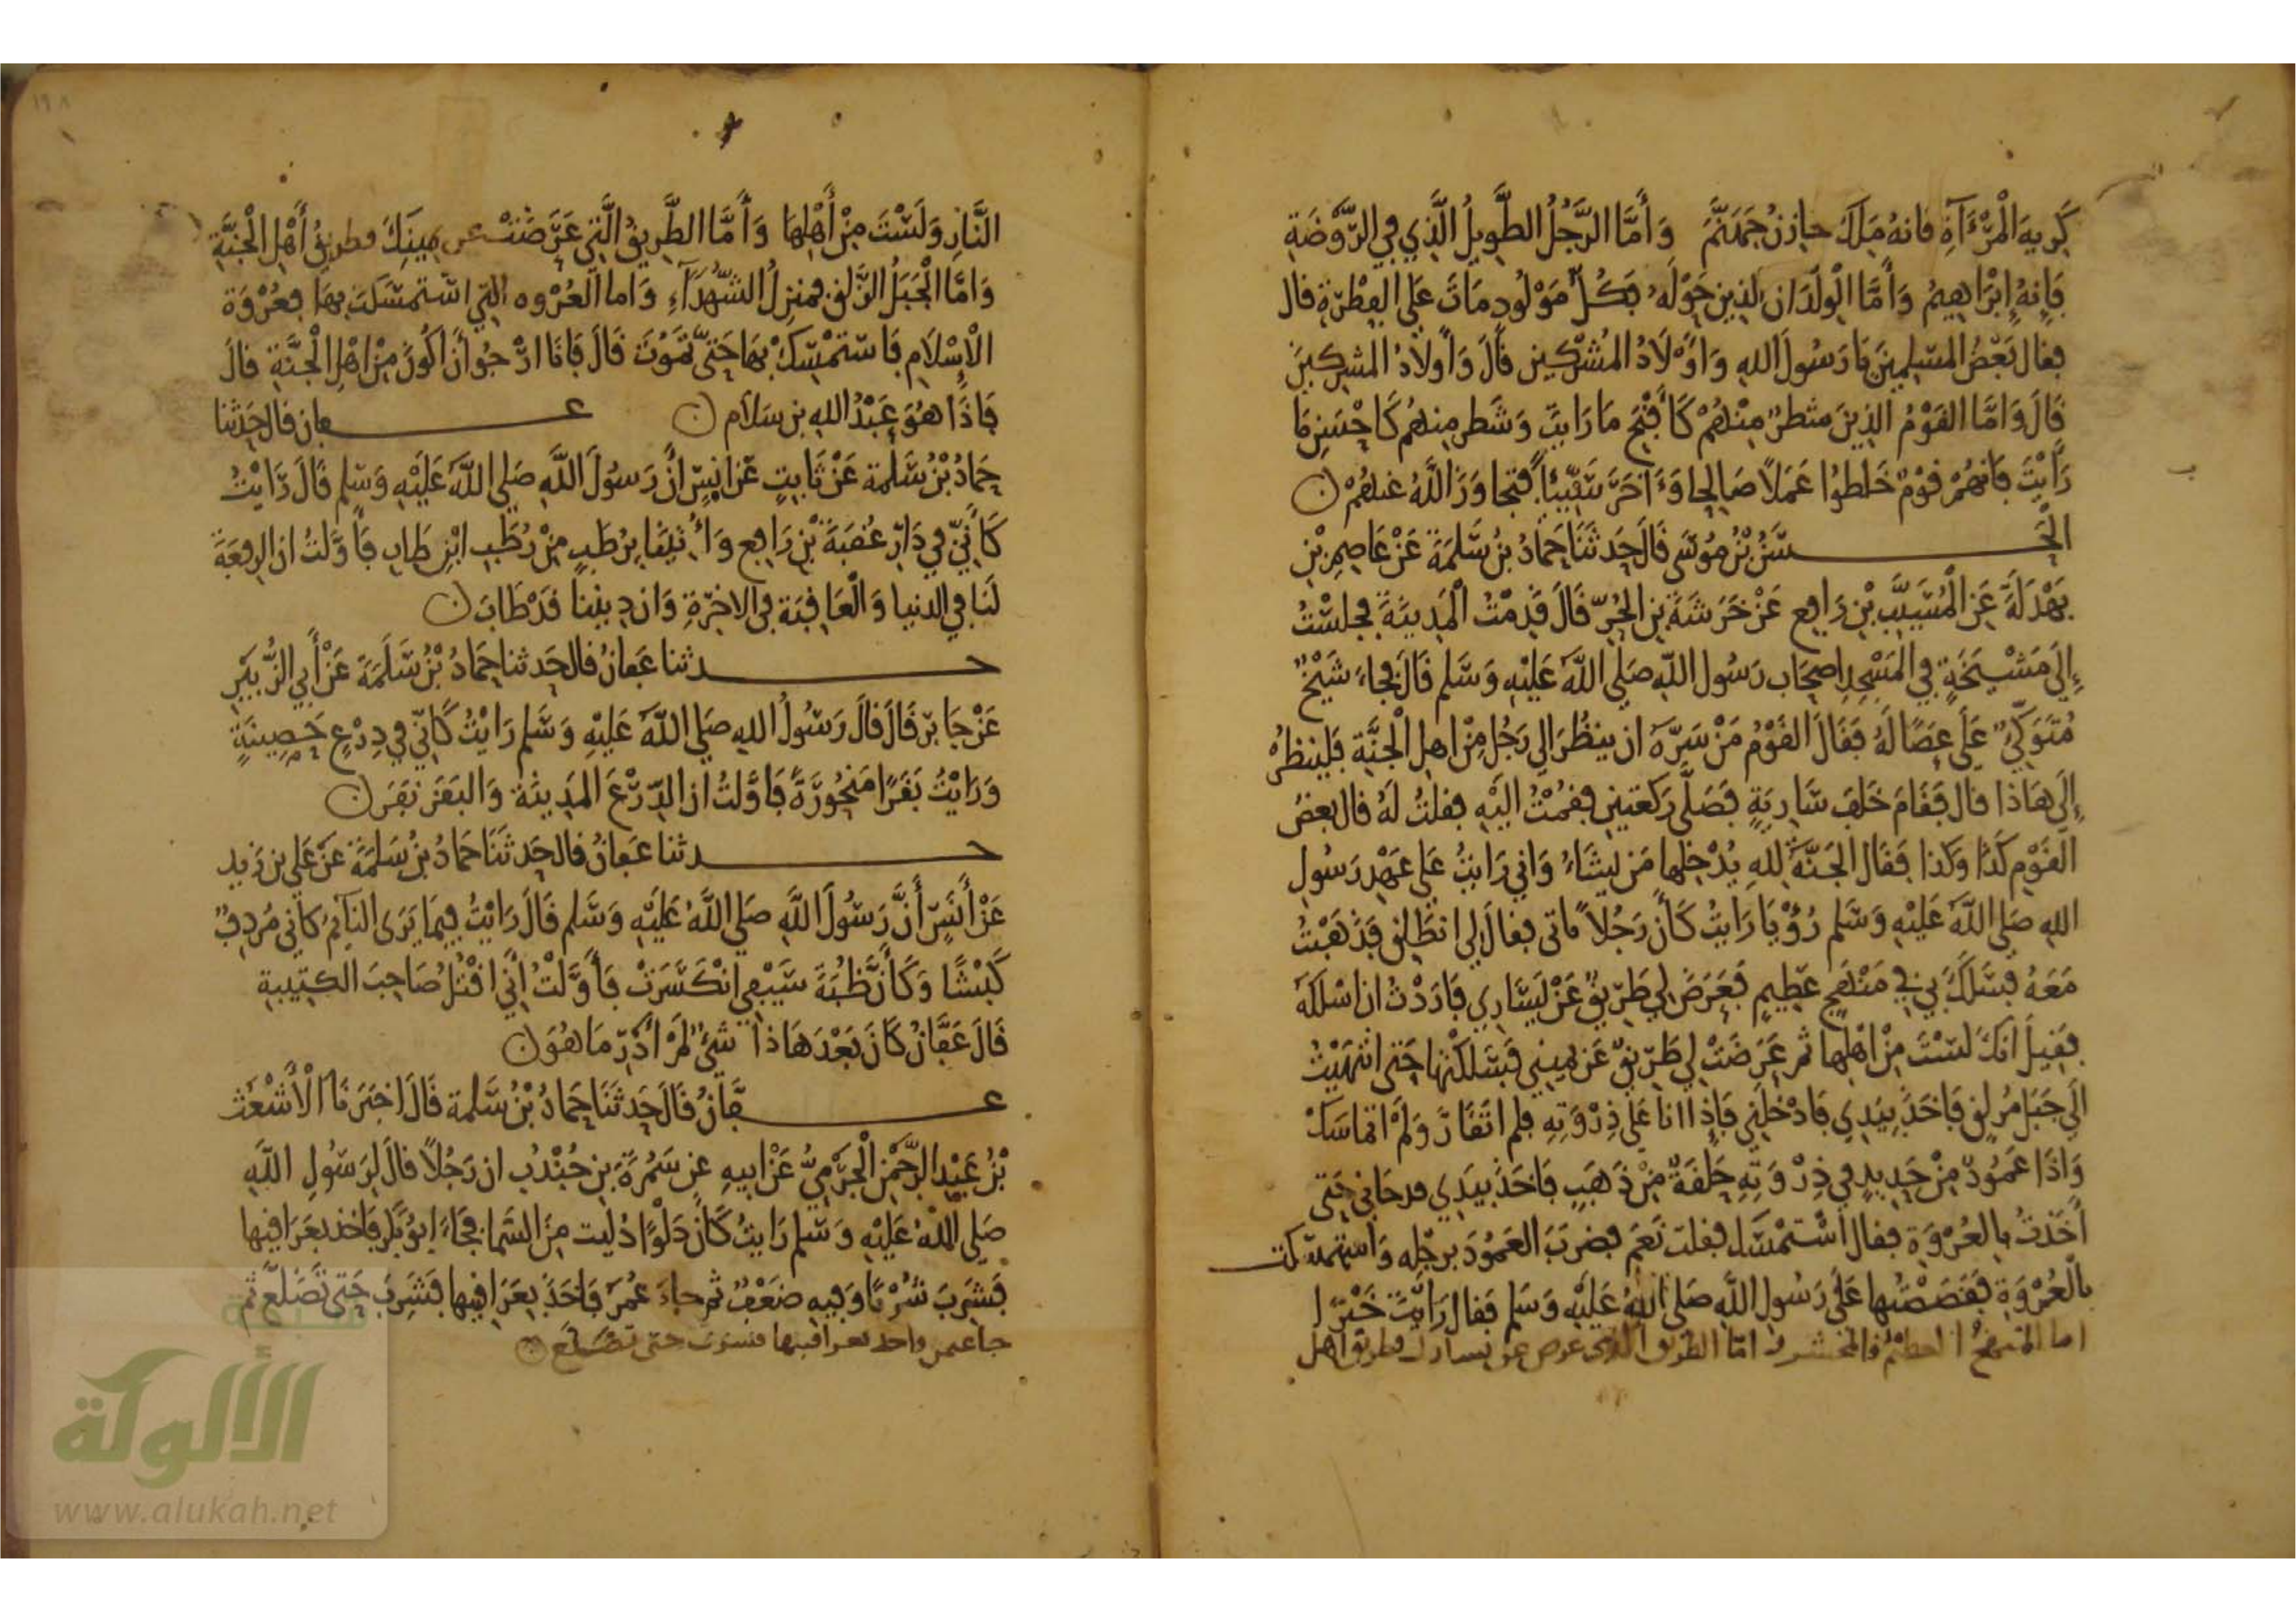 كَرِيهِ الْمَرْءَآةِ فانهُ مَلَكٌ خازنُ جَهَنَّمَ وَأَمَّا الرَّجُلُ الطَّوِيلُ الَّذِي فِي الرَّوْضَةِ
فَإِنهُ إِبْرَاهِيمُ وَأَمَّا الْوِلْدَان الذين حَوْلَهُ فَكُلُّ مَوْلُودٍ مَاتَ عَلَى الفِطْرَةِ قال
فقال بَعْضُ المسْلِمِينَ يَا رَسُولَ اللهِ وَأَوْلَادُ المُشْرِكِينَ قَالَ وَأَولَادُ المشركِينَ
قَالَ وَامَّا القَوْمُ الذِينَ شطرٌ مِنْهُمْ كَأَقْبَحِ مَا رَايتَ وَشَطر مِنهُم كَأَحْسَنِ مَا
رَأَيْتَ فَإنهُمْ قَوْمٌ خَلَطُوا عَمَلًا صَالِحا وَءَاخَرَ سَيِّئًا فتجاوَزَ اللَّهُ عَنهُمْ
الْحَسَنُ بْنُ مُوسَى قَالَ حَدثَنَا حَمَادُ بنُ سَلَمَةَ عَنْ عَاصِمِ بْنِ
بَهْدَلَةَ عَنِ الْمُسَيَّبِ بْنِ رَافِعٍ عَنْ خَرَشَةَ بن الحُرِّ قَالَ قَدِمْتُ الْمَدِينَةَ فجلسْتُ
إِلَى مَشْيَخَةٍ فِي المَسْجِدِ اصحَاب رَسُول اللهِ صَلَى اللَّهُ عَلَيْهِ وَسَلَّم قَالَ فجاءَ شَيْخٌ
مُتَوَكِّئٌ عَلَى عَصًا لَهُ فَقَالَ القَوْمُ مَنْ سَرَّهُ ان ينظُرَ الى رَجُلٍ مِنْ اهل الْجَنَّةِ فَلينظُرْ
إِلَى هَاذا قال فَقَامَ خَلفَ سَارِيَةٍ فَصَلَّى رَكعتينِ فقمْتُ اليْهِ فقلتُ لَهُ قال بعضُ
القَوْم كَذَا وَكذا فَقَال الجَنَّةُ للهِ يُدْخِلها مَن يشَاءُ وَاني رَايتُ عَلى عَهْدِ رَسُولِ
اللهِ صَلى اللَّهُ عَلَيْهِ وَسَلم رُؤْيَا رَايتُ كَأَن رَجُلاً اتانى فقال لي انطَلِق فذَهَبْتُ
مَعَهُ فسَلَكَ بي في مَنْهَجٍ عَظِيمٍ فَعَرَضَ لِي طَرِيقٌ عَنْ يَسَارِي فَأَرَدْتُ ان اسْلكَهُ
فقِيلَ انكَ لسْتَ مِنْ اهْلِها ثم عَرَضَتْ لي طَرِيقٌ عَن يَمِينِي فَسَلكْتُها حَتى انتهَيْتُ
الَى جَبَلٍ زَلِقٍ فَاخَذَ بِيَدِي فَادْخَلَنِي فَإِذا انا عَلى ذِرْوَتِهِ فلم اتَقَارَّ وَلَمْ اتماسَكْ
وَاذَا عَمُودٌ مِنْ حَدِيدٍ فِي ذِرْوَتِهِ حَلقَةٌ مِنْ ذَهَبٍ فَاخَذَ بيَدِي فدحَانِي حَتى
أَخَذْتُ بِالعُرْوَةِ فقال اسْتَمْسِك فقلت نَعَم فضرَبَ العَمُودَ برجْلِه وَاستمسكت
بالْعُرْوَةِ فَقَصَصْتُها عَلَى رَسُولِ اللَّهِ صَلى اللهُ عَلَيْهِ وَسَلم فقال رَأَيْتَ خَيْرًا
اما المنهجُ العظيمُ فالمحشر وامّا الطريق الذى عرض عن يسارك فطريق اهل
النَّارِ وَلَسْتَ مِنْ أَهْلِهَا وَأَمَّا الطَّرِيقُ الَّتِي عَرَضَتْ عن يمينِكَ فطريقُ أَهْلِ الْجَنَّةِ
وَامَّا الْجَبَلُ الزَّلق فمنزِلُ الشُّهَدَآءِ وَاما العُرْوه التِي استمسَكتَ بِهَا فعُرْوَة
الْإِسْلَامِ فَاسْتمْسِكْ بِهَا حَتىَّ تَمُوتَ قَالَ فَانَا ارْجُو أَنْ أكُونَ مِنْ اهْلِ الْجَنَّةِ قالَ
فَاذَا هُوَ عَبْدُ الله بن سَلَام عفان قال حَدثنا
حَمَادُ بْنُ سَلَمة عَنْ ثَابتٍ عَن انسٍ انَّ رَسُولَ اللَّهِ صَلى اللَّهُ عَلَيْهِ وَسَلم قَالَ رَايْتُ
كَأَنِّي فِي دَارِ عُقبَةَ بْنِ رَافِع وَأُتِيْنَا برُطبٍ مِنْ رُطَبِ ابْنِ طَاب فَأَوَّلتُ ان الرِفعَةَ
لَنَا فِي الدنيا وَالْعَافِيَة فى الاخِرَةِ وَان دِيننا قَدْ طَابَ
حدثنا عَفانُ قال حَدثنا حَمَادُ بْنُ سَلَمَةَ عَنْ أَبِي الزُّبَيْرِ
عَنْ جَابرٍ قَالَ قالَ رَسُولُ اللهِ صَلى اللَّهُ عَلَيْهِ وَسَلم رَايْتُ كَانِّي فِي دِرْعٍ حَصِينَةٍ
وَرَايْتُ بَقَرًا مَنْحُورَةً فَاوَّلتُ ان الدِّرْعَ المَدِينَة وَالبَقَرَ نفَر
حدثنا عَفانُ قال حَدثَنَا حَمَادُ بنُ سَلَمَةَ عَنْ عَلي بن زَيد
عَنْ أَنَسٍ أَنَّ رَسُولَ اللَّهِ صَلى اللَّهُ عَلَيْهِ وَسَلم قَالَ رَايْتُ فِيمَا يَرَى النَآئِمُ كَأني مُردِفٌ
كَبْشًا وَكَأَن ظُبَةَ سَيْفِي انْكَسَرَتْ فَأَوَّلْتُ أَنِّي اقْتُلُ صَاحِبَ الكتِيبةِ
قَالَ عَفَّانُ كَانَ بَعْدَ هَاذا شَيْءٌ لَمْ أَدْرِ مَا هُوَ
عَفَّانُ قَالَ حَدثَنَا حَمَادُ بْنُ سَلمة قَالَ اخبَرَنَا الْأَشْعَثُ
بْنُ عَبْدِ الرَّحْمَنِ الْجَرْمِيُّ عَنْ ابيهِ عن سَمُرَةَ بن جُنْدُبٍ ان رَجُلاً قالَ لِرَسُولِ اللَّهِ
صَلى اللهُ عَلَيْهِ وَسَلم رَايتُ كَأَن دَلْوًا دُلِّيت مِنَ السَمَا فجَاءَ ابُو بَكر فاخذ بعَرَاقيها
فَشرِبَ شُرْبًا وَفِيهِ ضَعْفٌ ثم جاءَ عُمَرُ فَاخَذَ بِعَرَاقيها فَشَرِبَ حَتى تَضَلَّعَ ثم
جا عثمن واخذ بعراقيها فشرب حتى تضلع
الألوكة
www.alukah.net